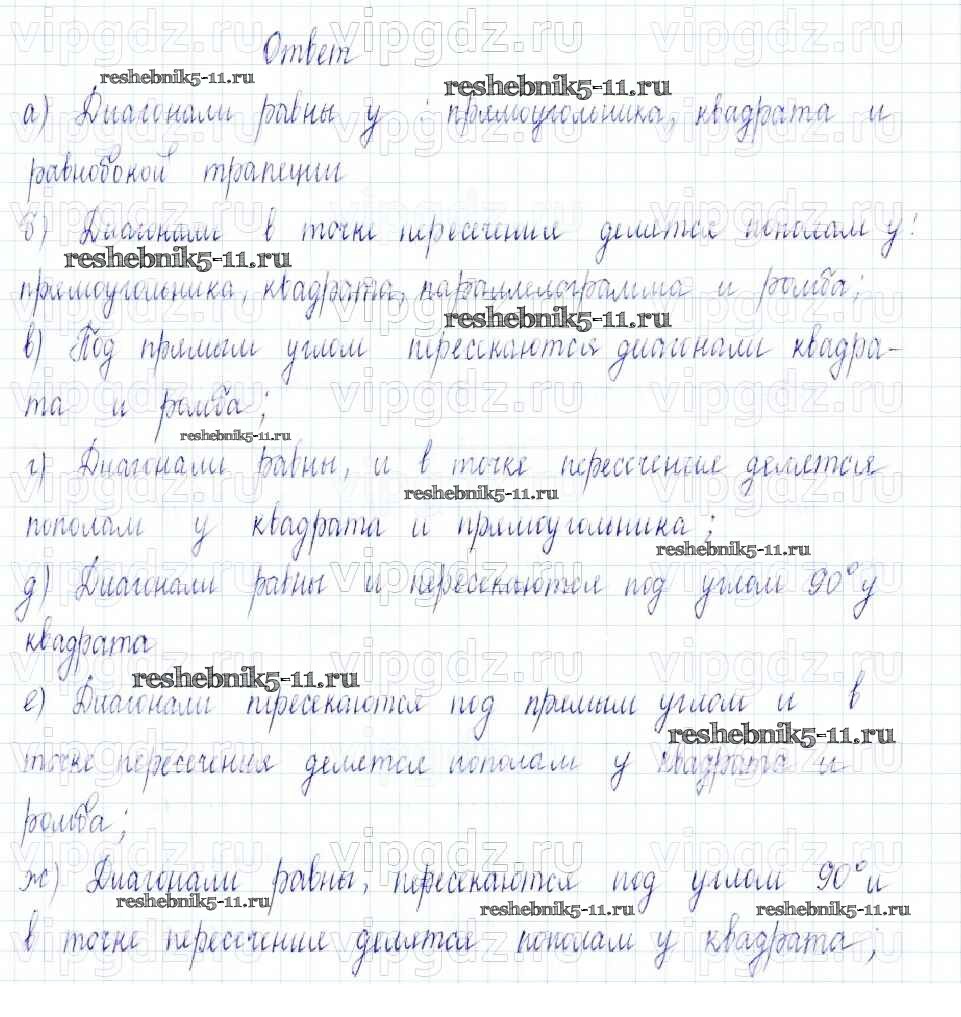 Ответ
а) Диагонали равны у : прямоугольника, квадрата и
равнобокой трапеции
б) Диагонали в точке пересечения делятся пополам у:
прямоугольника, квадрата, параллелограмма и ромба;
в) Под прямым углом пересекаются диагонали квадра-
та и ромба;
г) Диагонали равны, и в точке пересечения делятся
пополам у квадрата и прямоугольника;
д) Диагонали равны и пересекаются под углом 90° у
квадрата
е) Диагонали пересекаются под прямым углом и в
точке пересечения делятся пополам у квадрата и
ромба;
ж) Диагонали равны, пересекаются под углом 90° и
в точке пересечения делятся пополам у квадрата;
vipgdz.ru
reshebnik5-11.ru